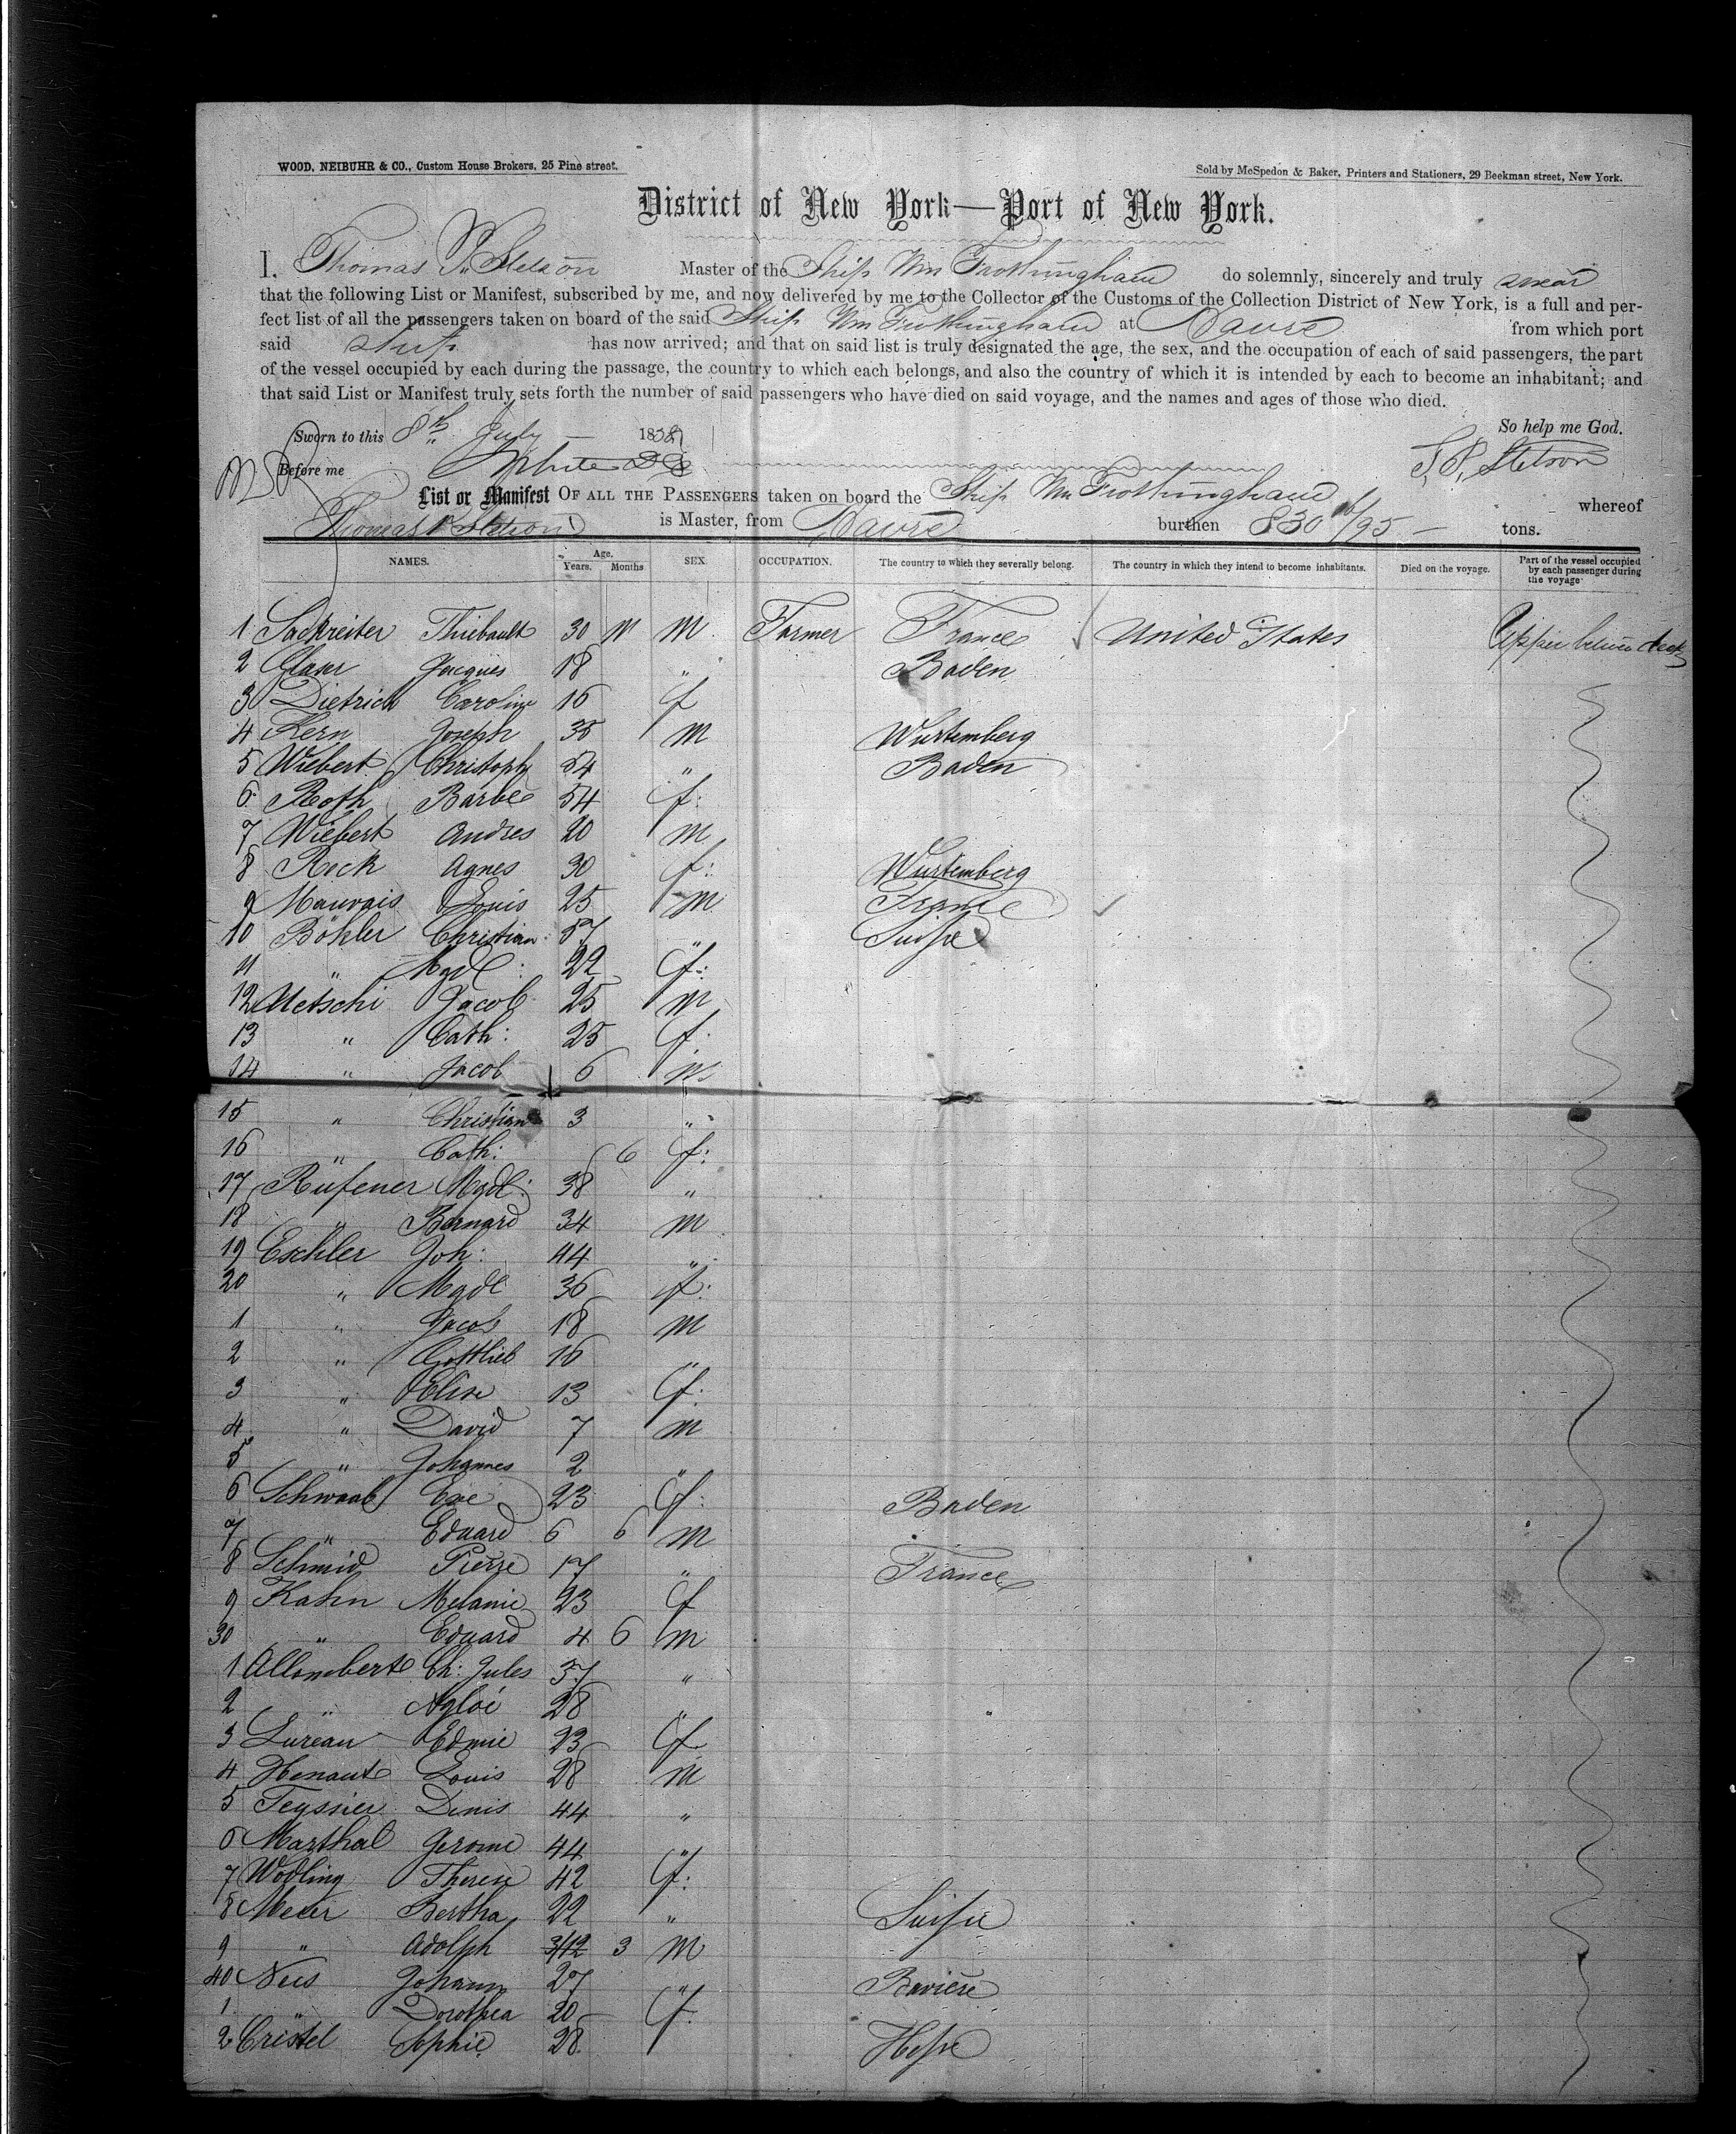 WOOD, NEIBUHR & CO., Custom House Brokers, 25 Pine street.
Sold by McSpedon & Baker, Printers and Stationers, 29 Beekman street, New York.
District of New York—Port of New York.
I, Thomas P. Stetson Master of the Ship Wm Frothingham do solemnly, sincerely and truly swear
that the following List or Manifest, subscribed by me, and now delivered by me to the Collector of the Customs of the Collection District of New York, is a full and per-
fect list of all the passengers taken on board of the said Ship Wm Frothingham at Havre from which port
said Ship has now arrived; and that on said list is truly designated the age, the sex, and the occupation of each of said passengers, the part
of the vessel occupied by each during the passage, the country to which each belongs, and also the country of which it is intended by each to become an inhabitant; and
that said List or Manifest truly sets forth the number of said passengers who have died on said voyage, and the names and ages of those who died.
So help me God.
Sworn to this 8th July 1858
Before me White
T. P. Stetson
List or Manifest OF ALL THE PASSENGERS taken on board the Ship Wm Frothingham whereof
Thomas P Stetson is Master, from Havre burthen 830 16/95 tons.
NAMES. Age. Years. Months SEX. OCCUPATION. The country to which they severally belong. The country in which they intend to become inhabitants. Died on the voyage. Part of the vessel occupied by each passenger during the voyage
1 Sackreiter Thiebault 30 M M Farmer France United States Upper betwn deck
2 Glaser Jacques 18 " Baden
3 Dietrich Caroline 16 f
4 Kern Joseph 35 M Wurtemberg
5 Wiebert Christoph 54 " Baden
6 Roth Barbe 54 f:
7 Wiebert Andres 20 M
8 Reck Agnes 30 f: Wurtemberg
9 Mauvais Louis 25 M France
10 Böhler Christian: 57 " Suisse
11 " Mgdl: 22 f:
12 Uetschi Jacob 25 M
13 " Cath: 25 f:
14 " Jacob 6 M
15 " Christian 3 "
16 " Cath: 6 f:
17 Rüfener Mgdl: 38 "
18 " Bernard 34 M
19 Eschler Joh: 44 "
20 " Mgdl 36 f:
1 " Jacob 18 M
2 " Gottlieb 16 "
3 " Elise 13 f:
4 " David 7 M
5 " Johannes 2 "
6 Schwaab Eve 23 f: Baden
7 " Eduard 6 6 M
8 Schmid Pierre 17 " France
9 Kahn Melanie 23 f
30 " Eduard 4 6 M
1 Allombert Ch: Jules 37 "
2 " Agloé 28 "
3 Lureau Edmie 23 f
4 Henaut Louis 28 M
5 Teyssier Denis 44 "
6 Marthal Jerome 44 "
7 Wodling Therese 42 f:
8 Meier Bertha 22 " Suisse
9 " Adolph 3/12 3 M
40 Neis Johann 27 " Baviere
1 " Dorothea 20 f
2 Cristel Sophie 28 Hesse